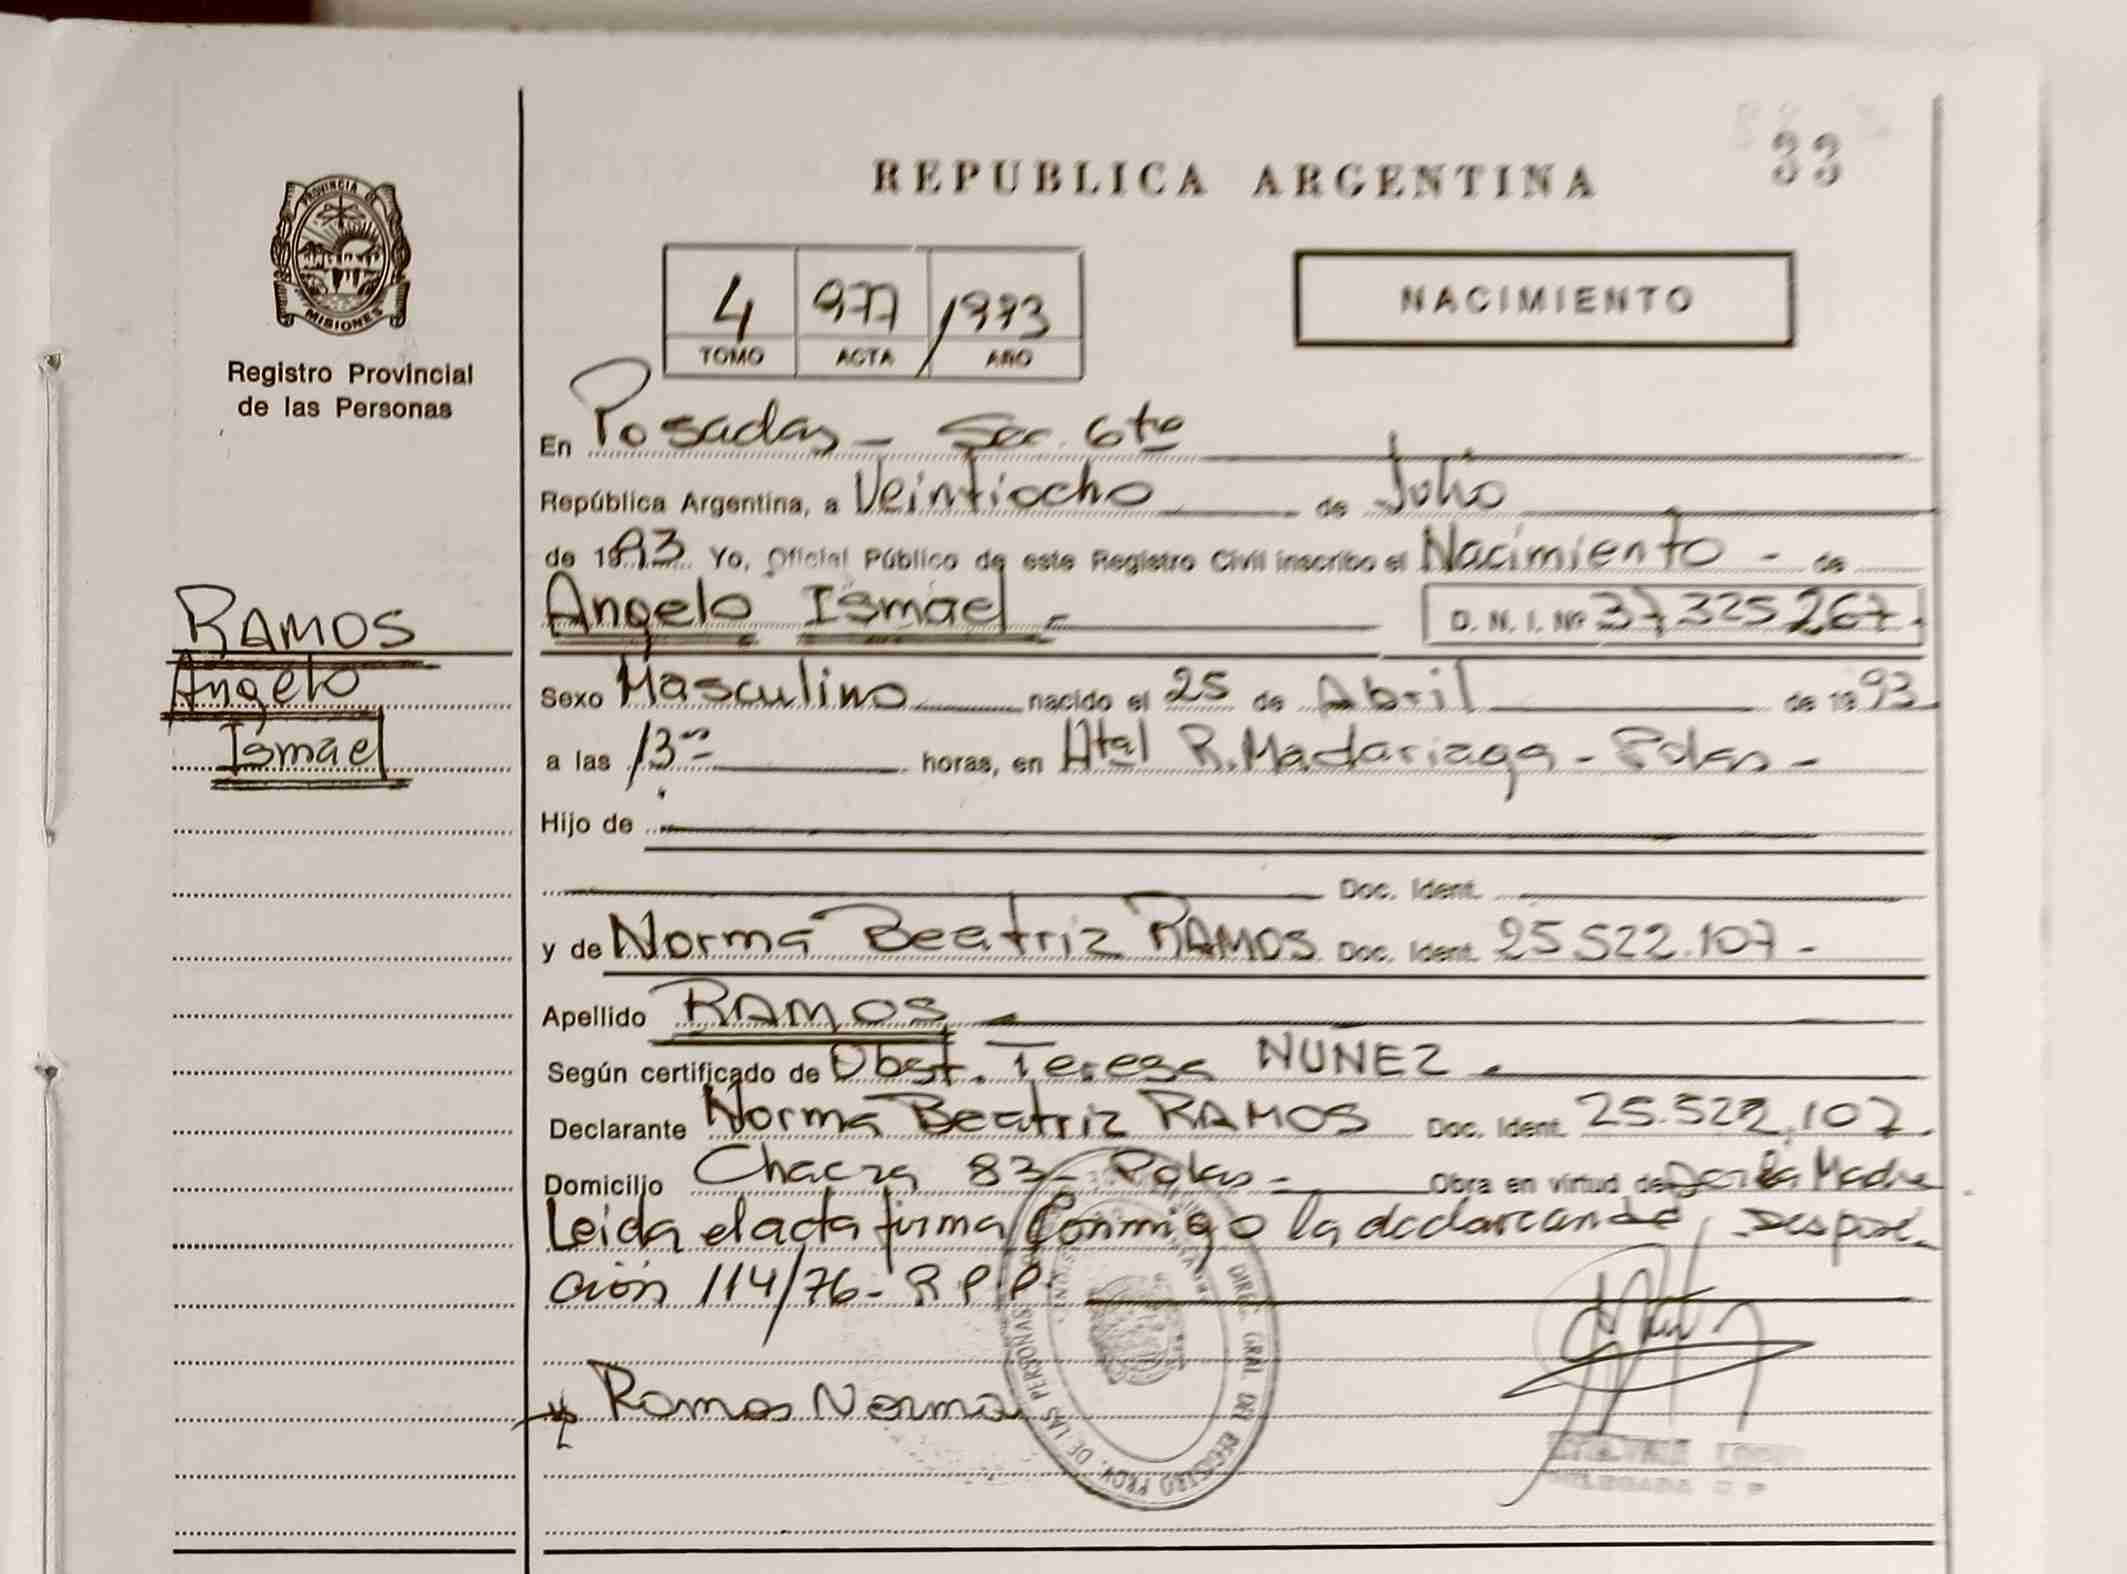 33
REPUBLICA ARGENTINA
PROVINCIA DE MISIONES
Registro Provincial
de las Personas
4 977 1993
TOMO ACTA AÑO
NACIMIENTO
En Posadas - Sec. 6ta
República Argentina, a Veintiocho de Julio
de 1993 Yo, Oficial Público de este Registro Civil inscribo el Nacimiento - de
RAMOS
Angelo
Ismael
Angelo Ismael - D. N. I. Nº 37325267.
Sexo Masculino nacido el 25 de Abril de 1993
a las 13 horas, en Htal R. Madariaga - Pdas -
Hijo de
Doc. Ident.
y de Norma Beatriz RAMOS Doc. Ident. 25522.107 -
Apellido RAMOS -
Según certificado de Obst. Teresa NUÑEZ -
Declarante Norma Beatriz RAMOS Doc. Ident. 25.522.107.
Domicilio Chacra 83 - Pdas - Obra en virtud de Ser la Madre
Leida el acta firma Conmigo la declarante, Disposi-
ción 114/76 - R P P
Ramos Norma
DIREC. GRAL. DEL REGISTRO PROV. DE LAS PERSONAS